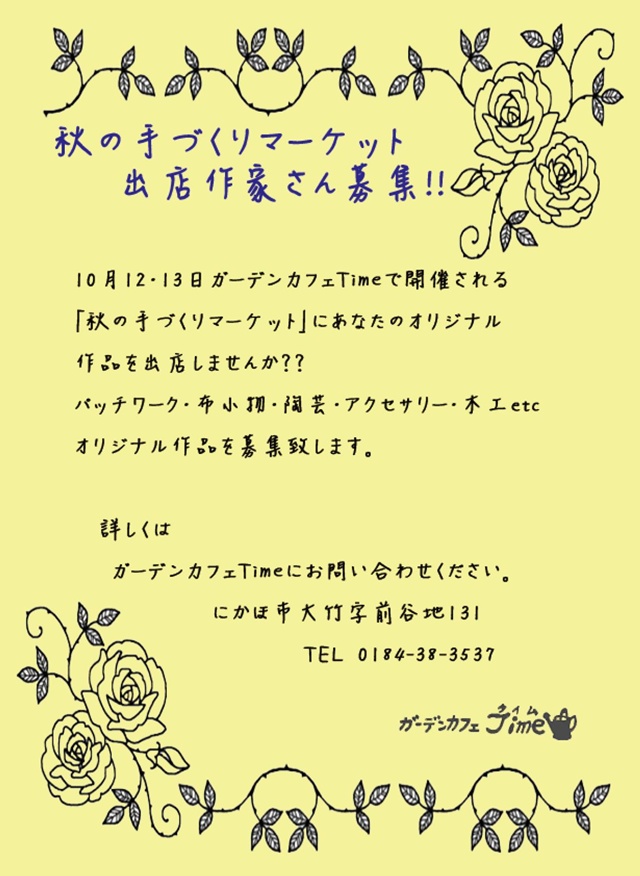 秋の手づくりマーケット
出店作家さん募集!!
10月12・13日ガーデンカフェTimeで開催される
「秋の手づくりマーケット」にあなたのオリジナル
作品を出店しませんか??
パッチワーク・布小物・陶芸・アクセサリー・木工etc
オリジナル作品を募集致します。
詳しくは
ガーデンカフェTimeにお問い合わせください。
にかほ市大竹字前谷地131
TEL 0184-38-3537
タイム
ガーデンカフェ Time